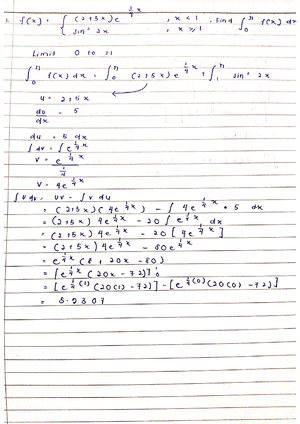 1. f(x) = { (2+5x) e^{1/4 x} , x < 1 . find ∫_0^π f(x) dx
{ sin² 2x , x ≥ 1
Limit 0 to π
∫_0^π f(x) dx = ∫_0^1 (2+5x) e^{1/4 x} + ∫_1^π sin² 2x
u = 2+5x
du/dx = 5
du = 5 dx
∫ dv = ∫ e^{1/4 x}
v = e^{1/4 x} / (1/4)
v = 4e^{1/4 x}
∫ u dv = uv - ∫ v du
= (2+5x)(4e^{1/4 x}) - ∫ 4e^{1/4 x} • 5 dx
= (2+5x) 4e^{1/4 x} - 20 ∫ e^{1/4 x} dx
= (2+5x) 4e^{1/4 x} - 20 [4e^{1/4 x}]
= (2+5x) 4e^{1/4 x} - 80e^{1/4 x}
= e^{1/4 x} (8 + 20x - 80)
= [e^{1/4 x} (20x - 72)]_0^1
= [e^{1/4 (1)} (20(1) - 72)] - [e^{1/4 (0)} (20(0) - 72)]